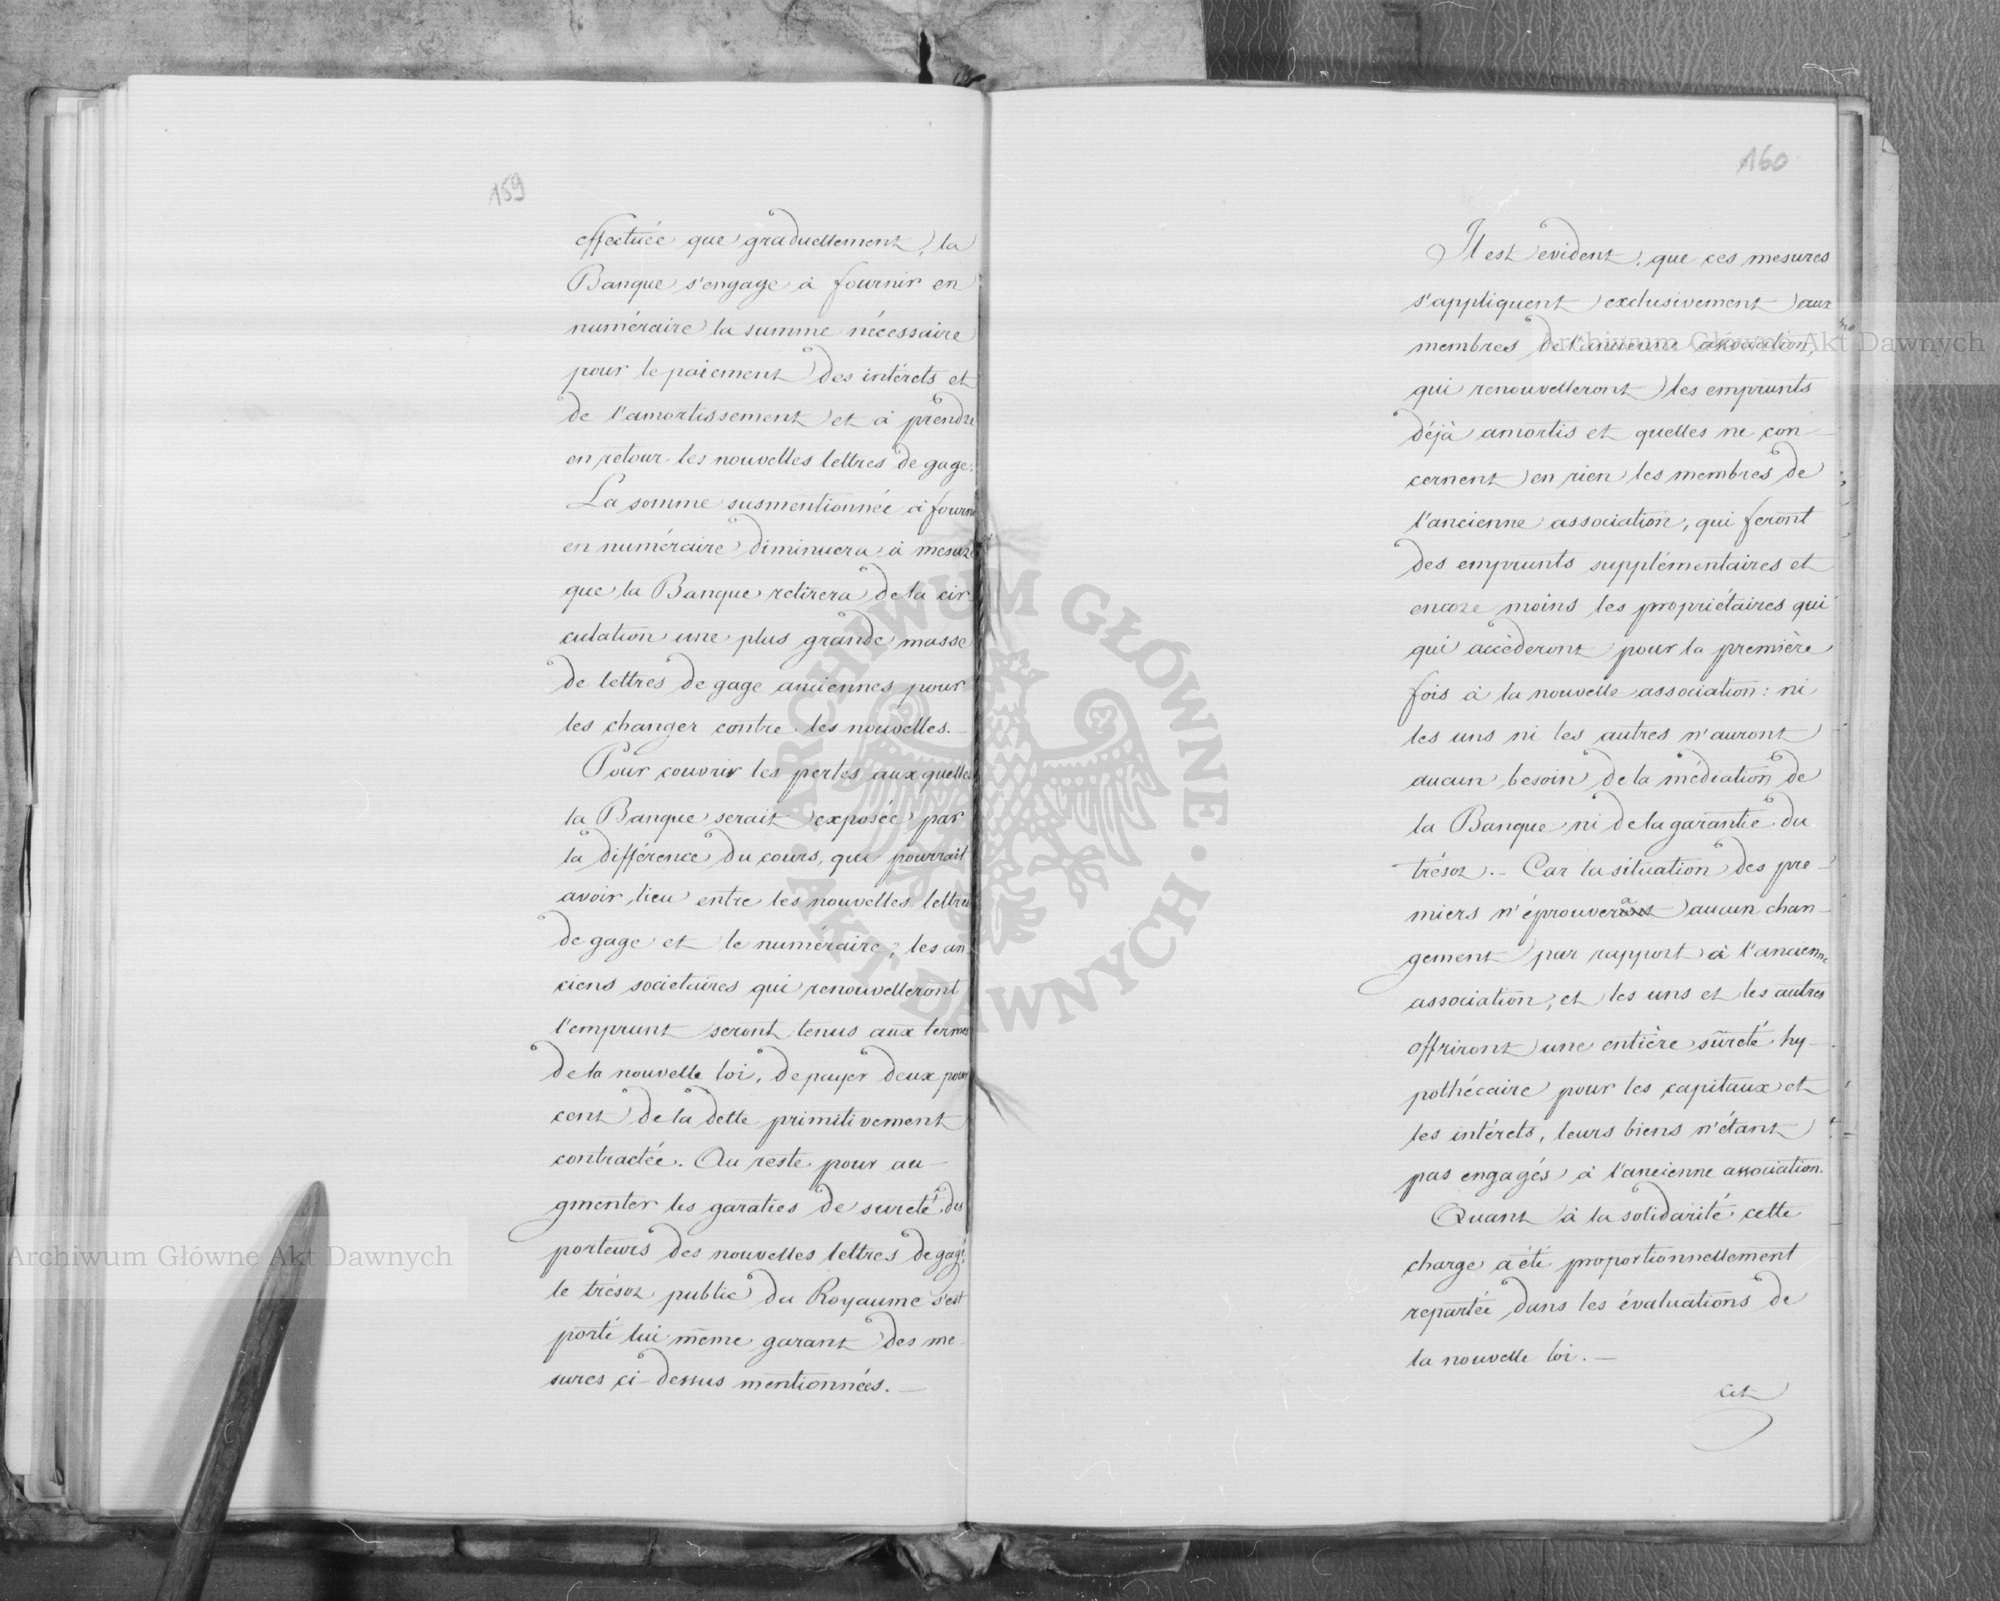 159
effectuée que graduellement, la
Banque s'engage à fournir en
numéraire la summe nécessaire
pour le paiement des intérets et
de l'amortissement et à prendre
en retour les nouvelles lettres de gage.
La somme susmentionnée à fourni
en numéraire diminuera à mesure
que la Banque retirera de la cir
culation une plus grande masse
de lettres de gage anciennes pour
les changer contre les nouvelles. –
Pour couvrir les pertes aux quelles
la Banque serait exposée par
la différence du cours, qui pourrait
avoir lieu entre les nouvelles lettres
de gage et le numéraire; les an
ciens societaires qui renouvelleront
l'emprunt seront tenus aux termes
de la nouvelle loi, de payer deux pour
cent de la dette primitivement
contractée. Au reste pour au-
gmenter les garaties de sureté des
porteurs des nouvelles lettres de gage,
le trésor public du Royaume s'est
porté lui même garant des me
sures ci-dessus mentionnées. –
160
Il est évident, que ces mesures
s'appliquent exclusivement aux
membres de l'ancienne association,
qui renouvelleront les emprunts
déjà amortis et quelles ne con-
cernent en rien les membres de
l'ancienne association, qui feront
des emprunts supplémentaires et
encore moins les propriétaires qui
qui accèderont pour la première
fois à la nouvelle association: ni
les uns ni les autres n'auront
aucun besoin de la médiation de
la Banque ni de la garantie du
trésor. – Car la situation des pre-
miers n'éprouvera aucun chan-
gement par rapport à l'ancienne
association, et les uns et les autres
offriront une entière sûreté hy-
pothécaire pour les capitaux et
les intérets, leurs biens n'étant
pas engagés à l'ancienne association.
Quant à la solidarité cette
charge a été proportionnellement
repartée dans les évaluations de
la nouvelle loi. –
Archiwum Główne Akt Dawnych
Archiwum Główne Akt Dawnych
ARCHIWUM GŁÓWNE · AKT DAWNYCH ·